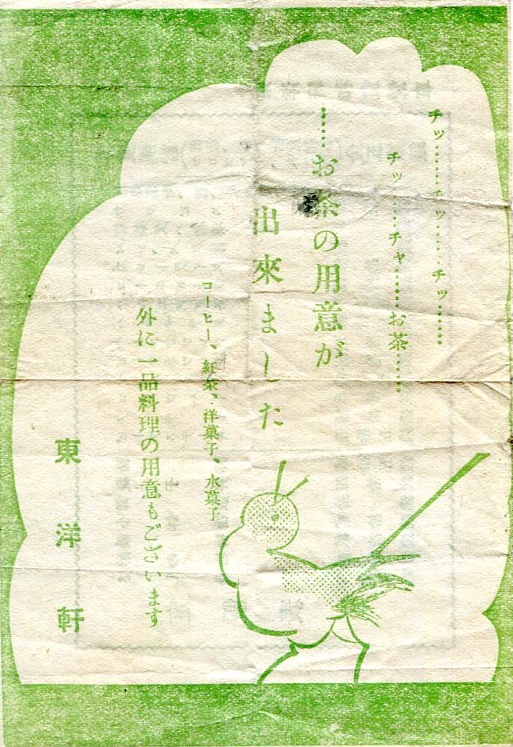 チッ……チッ……チッ……
チッ……チャ……お茶……
……お茶の用意が
出來ました
コーヒー、紅茶、洋菓子、水菓子
外に一品料理の用意もございます
東洋軒